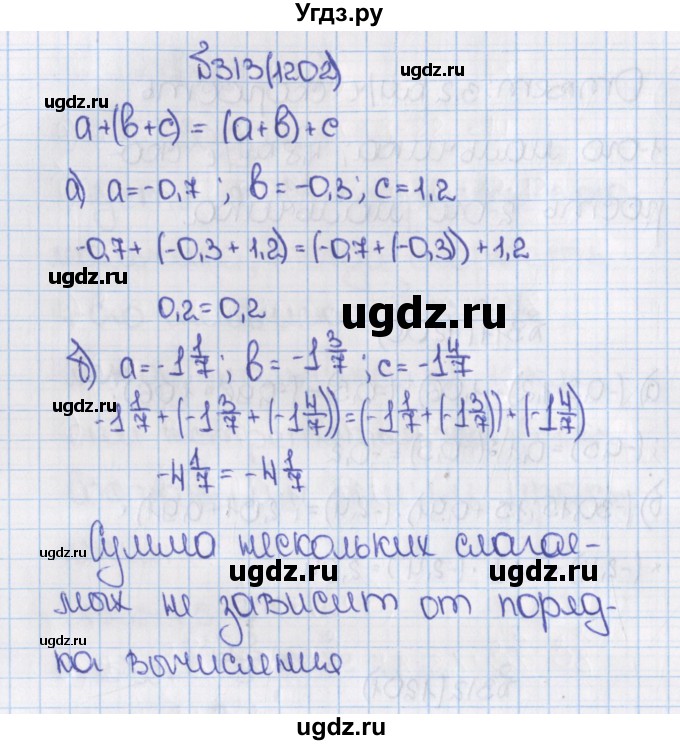 Угдз.ру
№313(1202)
ugdz.ru
ugdz.ru
a+(b+c) = (a+b)+c
а) a=-0,7 ; b=-0,3; c=1,2
ugdz.ru
-0,7+ (-0,3+1,2)=(-0,7+(-0,3))+1,2
ugdz.ru
0,2=0,2
ugdz.ru
б) a=-1 1/7; b= -1 3/7; c=-1 4/7
ugdz.ru
-1 1/7+(-1 3/7+(-1 4/7))=(-1 1/7+(-1 3/7))+(-1 4/7)
-4 1/7=-4 1/7
Сумма нескольких слагае-
ugdz.ru
ugdz.ru
ugdz.ru
мых не зависит от поряд-
ugdz.ru
ка вычисления
ugdz.ru